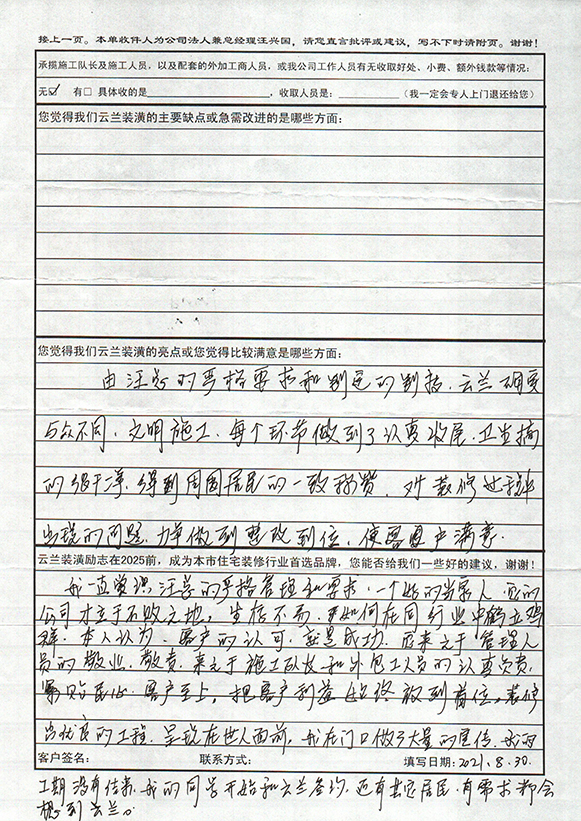 接上一页。本单收件人为公司法人兼总经理汪兴国，请您直言批评或建议，写不下时请附页。谢谢！
承揽施工队长及施工人员，以及配套的外加工商人员，或我公司工作人员有无收取好处、小费、额外钱款等情况：
无☑ 有□ 具体收的是＿＿＿＿＿＿＿＿，收取人员是：＿＿＿＿＿（我一定会专人上门退还给您）
您觉得我们云兰装潢的主要缺点或急需改进的是哪些方面：
您觉得我们云兰装潢的亮点或您觉得比较满意是哪些方面：
由汪总的严格要求和制定的制度．云兰
与众不同．文明施工．每个环节做到了认真收尾．卫生搞
的很干净．得到周围居民的一致称赞．对装修过程
出现的问题．力争做到整改到位．使客户满意．
云兰装潢励志在2025前，成为本市住宅装修行业首选品牌，您能否给我们一些好的建议，谢谢！
我一直赏识汪总的严格管理和要求．一个好的当家人．
公司才立于不败之地．生存不易．更如何在同行业中鹤立鸡
群．本人认为．客户的认可．就是成功．应来之于管理人
员的敬业．敬责．来之于施工队长和外包工人员的认真负责．
客户至上．把客户利益始终放到首位．装修
出优良的工程．呈现在世人面前．我在门口做了大量的宣传．我的
客户签名： 联系方式： 填写日期：2021.8.30.
工期没有结束．我的同学开始和云兰签约．还有其它居民．有需求都会
想到云兰。